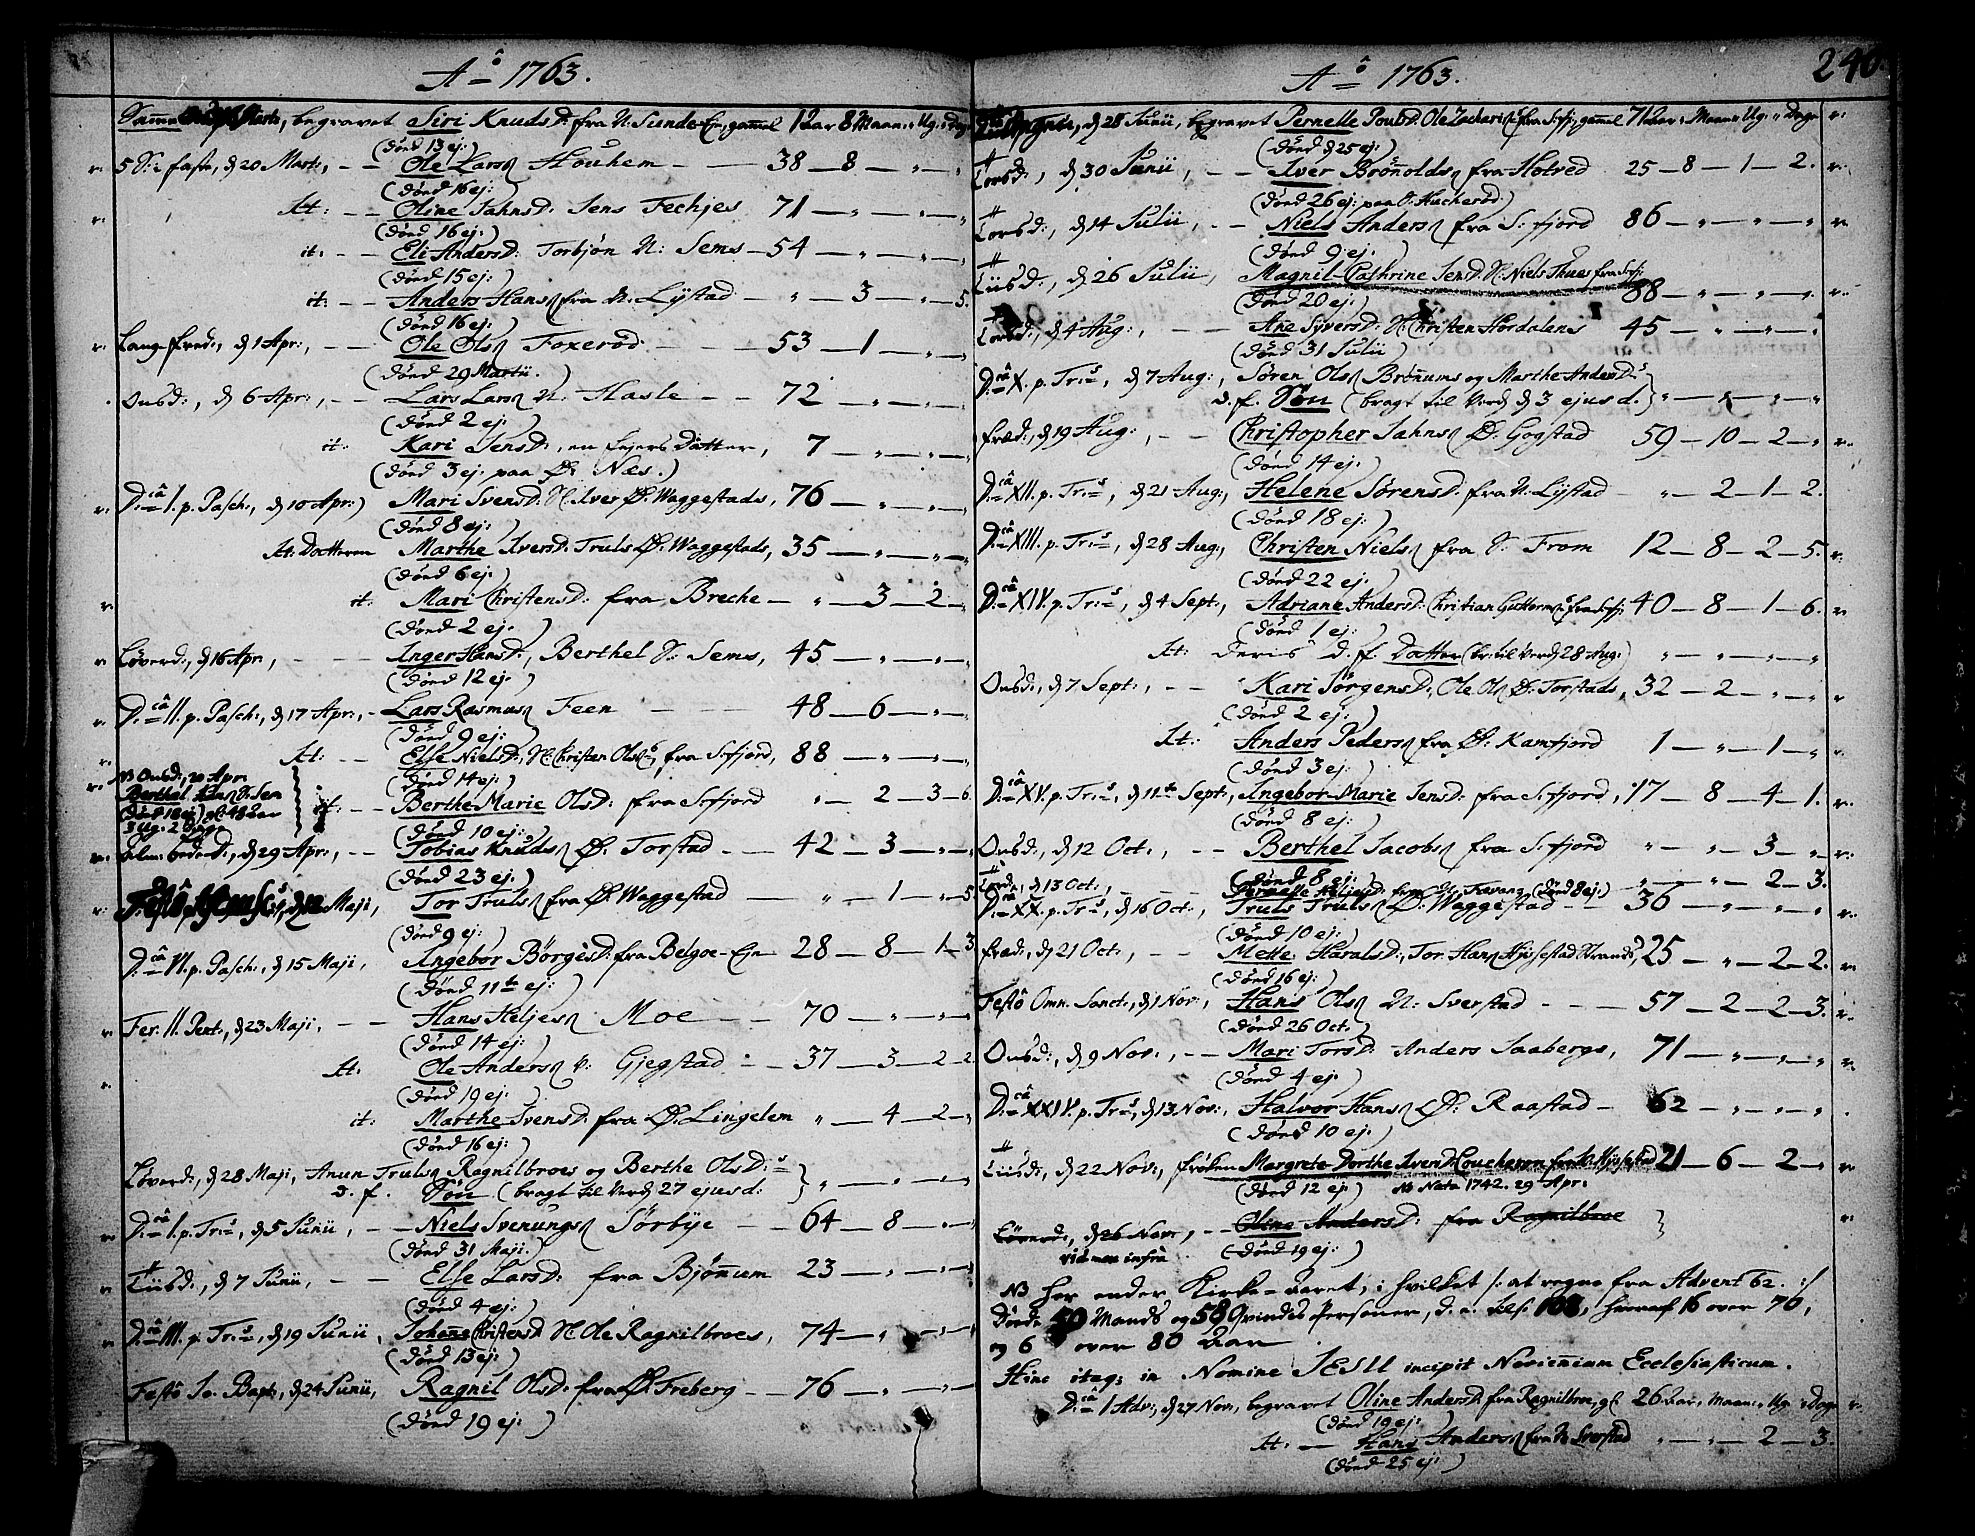 Aô 1763.
begravet Siri KnudsD: fra N: Sunde-Eje, gammel 12 aar 8 Maan: " Ug: " Dag
(død 13 ej:)
5 S: i faste, d 20 Mart:, — — Ole Lars Houhem — — 38 — 8 — " — "
(død 16 ej:)
It: — — Oline JahnsD: Jens Fechjes 71 — " — " — "
(død 16 ej:)
it: — — Eli AndersD: Torbjøn N: Sems — 54 — " — " — "
(død 15 ej:)
it: — — Anders Hans fra N: Lystad — " — 3 — " — 5.
(død 16 ej:)
Lang-fred:, d 1 Apr:, — — Ole Ols Foxerød — — 53 — 1 — " — "
(død 29 Martii.)
Onsd:, d 6 Apr:, — — Lars Lars N: Hasle — — 72 — " — " — "
(død 2 ej:)
it: Kari JensD:, en Ejers Datter, 7 — " — " — "
(død 3 ej: paa Ø: Næs.)
D:câ I. p. Pasch:, d 10 Apr:) Mari SvensD: S: Iver Ø: Waggestads, 76 — " — " — "
(død 8 ej:)
It: Datteren Marthe IversD: Truls Ø: Waggestads, 35 — " — " — "
(død 6 ej:)
it: Mari ChristensD: fra Breche — " — 3 — 2 — "
(død 2 ej:)
Løverd:, d 16 Apr:, — — Inger HansD:, Berthel S: Sems, 45 — " — " — "
(død 12 ej:)
D:câ II. p. Pasch:, d 17 Apr:, — Lars Rasmus Feen — — 48 — 6 — " — "
(død 9 ej:)
It: — — Else NielsD:, S: Christen Ols, fra S:fjord, 88 — " — " — "
(død 14 ej:)
NB Onsd:, 20 Apr:
Berthel Hans S: Sem
(død 18 ej:) gl: 48 aar
3 Ug: 2 Dage
it: — — Berthe-Marie OlsD: fra S:fjord " — 2 — 3 — 6.
(død 10 ej:)
Alm: bededD:, d 29 Apr:, — — Tobias Knuds Ø: Torstad — — 42 — 3 — " — "
(død 23 ej:)
Festô Maji, Tor Truls fra Ø: Waggestad — " — 1 — " — 5.
(død 9 ej:)
D:câ VI. p. Pasch:, d 15 Maji, Ingebor BørgesD: fra Belgoe-Eje 28 — 8 — 1 — 3.
(død 11te ej:)
Fer: II. Pent:, d 23 Maji, — — Hans Heljes Moe — — 70 — " — " — "
(død 14 ej:)
It: Ole Anders V: Gjegstad — — 37 — 3 — 2 — 2.
(død 19 ej:)
it: Marthe SvensD: fra Ø: Lingelem " — 4 — 2 — "
(død 16 ej:)
Løverd:, d 28 Maji, Anun Truls Ragnilbroes og Berthe OlsD:s
d. f. Søn (bragt til Verd 27 ejusd: } " — " — " — "
D:câ I. p. Tr:s, d 5 Junii, — — Niels Svenungs Sørbye — — 64 — 8 — " — "
(død 31 Maji.)
Tiisd:, d 7 Junii, — — Else LarsD: fra Bjønnum 23 — " — " — "
(død 4 ej:)
D:câ III. p. Tr:s, d 19 Junii, Johanne ChristensD: S: Ole Ragnilbroes, 74 — " — " — "
(død 13 ej:)
Festô Jo: Bapt:, d 24 Junii, Ragnil OlsD: fra Ø: Freberg — — 76 — " — " — "
(død 19 ej:)
Aô 1763. 240.
d 28 Junii, begravet Pernelle PoulsD: Ole Zacharis fra S:fj: gammel 71 aar " Maan: " Ug: " Dage
(død d 25 ej:)
Torsd:, d 30 Junii, — — Iver Brønolds fra Hotved 25 — 8 — 1 — 2.
(død 26 ej: paa S: Hucherød:)
Torsd:, d 14 Julii, — — Niels Anders fra S:fjord 86 — " — " — "
(død 9 ej:)
Tiisd:, d 26 Julii, Magnil-Cathrine JensD: S: Niels Thues fra S:fj:
(død 20 ej:) 88 — " — " — "
Torsd:, d 4 Aug:, — — Ane SyversD: S: Christen Hørdalens 45 — " — " — "
(død 31 Julii)
D:câ X. p. Tr:s, d 7 Aug:, Søren Ols Brønnums og Marthe AndersD:s
d. f. Søn (bragt til Verd d 3 ejusd.) " — " — " — "
Fred:, d 19 Aug:, — — Christopher Jahns Ø: Gogstad 59 — 10 — 2 — "
(død 14 ej:)
D:câ XII. p. Tr:s, d 21 Aug:, Helene SørensD: fra N: Lystad — " — 2 — 1 — 2.
(død 18 ej:)
D:câ XIII. p. Tr:s, d 28 Aug:, Christen Niels fra S: From 12 — 8 — 2 — 5.
(død 22 ej:)
D:câ XIV. p. Tr:s, d 4 Sept:, Adriane AndersD: Christian Guttorms fra S:fj: 40 — 8 — 1 — 6.
(død 1 ej:)
It: Deris d. f. Datter (br: til Verd 28 Aug:) " — " — " — "
Onsd:, d 7 Sept:, — — Kari JørgensD:, Ole Ols Ø: Torstads, 32 — 2 — " — "
(død 2 ej:)
It: Anders Peders fra Ø: Kamfjord 1 — " — 1 — "
(død 3 ej:)
D:câ XV. p. Tr:s, d 11te Sept:, Ingebor-Marie JensD: fra S:fjord, 17 — 8 — 4 — 1.
(død 8 ej:)
Onsd:, d 12 Oct:, — — Berthel Jacobs fra S:fjord " — " — 3 — "
(død 8 ej:)
Torsd:, d 13 Oct:, — — Pernelle fra (død 8 ej:) " — " — 2 — 3.
D:câ XX. p. Tr:s, d 16 Oct:, Truls Truls Ø: Waggestad — — 36 — " — " — "
(død 10 ej:)
Fred:, d 21 Oct:, — — Mette HaralsD:, Tor Hans Hjssestad Strands, 25 — " — 2 — 2.
(død 16 ej:)
Festô Omn: Sanct:, d 1 Nov:, Hans Ols N: Sverstad — — 57 — 2 — 2 — 3.
(død 26 Oct:)
Onsd:, d 9 Nov:, — — Mari TorsD: Anders Saabergs, 71 — " — " — "
(død 4 ej:)
D:câ XXIV. p. Tr:s, d 13 Nov:, Halvor Hans Ø: Raastad — 62 — " — " — "
(død 10 ej:)
Tiisd:, d 22 Nov:, frøken Margrete-Dorthe IvenD: Coucheron fra N: Hjssestad 21 — 6 — 2 — "
(død 12 ej:) NB Nata 1742. 29 Apr:
Løverd:, d 26 Nov:, — Oline AndersD: fra Ragnilbroe }
vid mox infra (død 19 ej:)
NB her ender Kirke-Aaret, i hvilket /: at regne fra Advent 62. :/
Døde 50 Mands og 58 Qvindes Personer, d. e. Tils: 108, hvoraf 16 over 70,
og 6 over 80 Aar
Hinc itaq; in Nomine JESU incipit Novi Ecclesiasticum.
D:câ 1 Adv:, d 27 Nov:, begravet Oline AndersD: fra Ragnilbroe, gl: 26 Aar, Maan: " Ug: " Dage
(død 19 ej:)
It: — Hans Anders fra N: Sverstad " — " — 2 — 3.
(død 25 ej:)